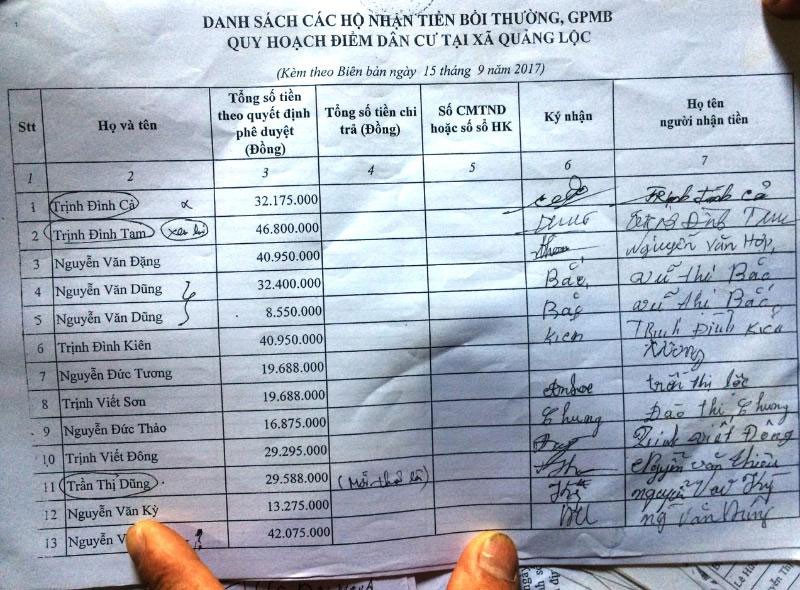 DANH SÁCH CÁC HỘ NHẬN TIỀN BỒI THƯỜNG, GPMB
QUY HOẠCH ĐIỂM DÂN CƯ TẠI XÃ QUẢNG LỘC
(Kèm theo Biên bản ngày 15 tháng 9 năm 2017)
Stt Họ và tên Tổng số tiền theo quyết định phê duyệt (Đồng) Tổng số tiền chi trả (Đồng) Số CMTND hoặc số sổ HK Ký nhận Họ tên người nhận tiền
1 2 3 4 5 6 7
1 Trịnh Đình Cả 32.175.000 Trịnh Đình Cả
2 Trịnh Đình Tam 46.800.000 Đình
3 Nguyễn Văn Đặng 40.950.000 Nguyễn Văn Hợp
4 Nguyễn Văn Dũng 32.400.000 Bắc Vũ Thị Bắc
5 Nguyễn Văn Dũng 8.550.000 Bắc Vũ Thị Bắc
6 Trịnh Đình Kiên 40.950.000 Kien Trịnh Đình Kiên
7 Nguyễn Đức Tương 19.688.000
8 Trịnh Viết Sơn 19.688.000 trần thị lộc
9 Nguyễn Đức Thảo 16.875.000 Chung Đào thị Chung
10 Trịnh Viết Đông 29.295.000 Trịnh Viết Đông
11 Trần Thị Dũng 29.588.000 Nguyễn Văn
12 Nguyễn Văn Kỳ 13.275.000 Kỳ Nguyễn Văn Kỳ
13 Nguyễn 42.075.000 ng Văn